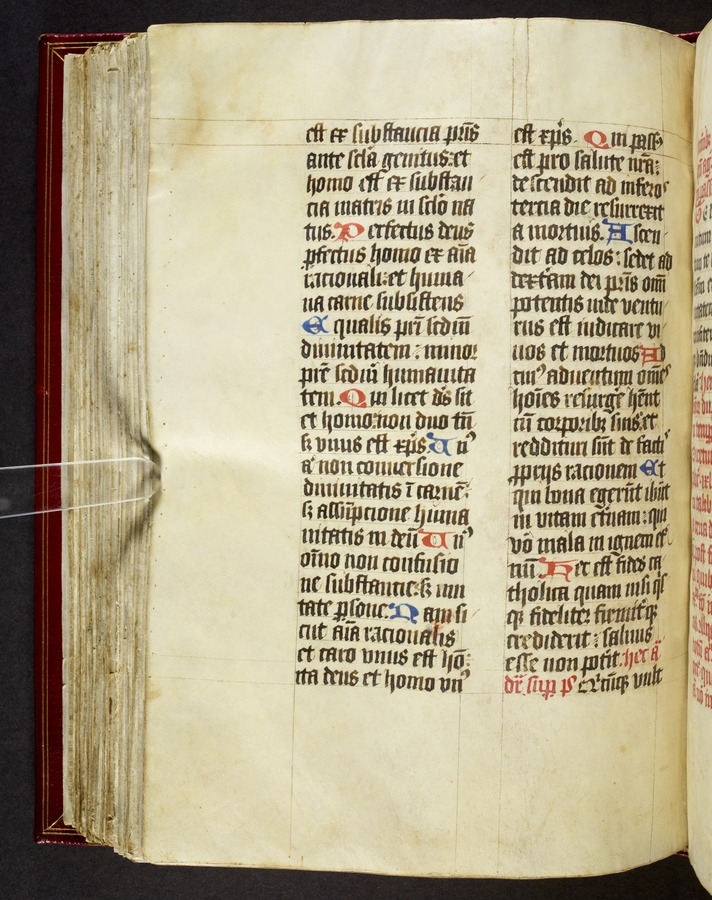 est ex substancia pr̄is
ante sc̄la genitus: et
homo est ex substan
cia matris in sc̄lo na
tus. Perfectus deus
ꝑfectus homo ex aīa
racionali: et huma
na carne subsistens
Equalis pr̄i scd̄m
diuinitatem: minor
pr̄e scd̄m humanita
tem. Qui licet d̄s sit
et homo: non duo tn̄
sꝫ vnus est xp̄s. Unꝰ
aū non conuersione
diuinitatis ī carnē:
sꝫ assūpcione huma
nitatis in deū Unꝰ
om̄o non confusio
ne substantie: sꝫ uni
tate ꝑsone. Nam si
cut aīa racionalis
et caro vnus est hō:
ita deus et homo vnꝰ
est xp̄s. Qui passꝰ
est pro salute nr̄a:
descendit ad inferos
tercia die resurrexit
a mortuis. Ascen
dit ad celos: sedet ad
dexteram dei pr̄is om̄i
potentis inde ventu
rus est iudicare vi
uos et mortuos Ad
cuiꝰ aduentum om̄es
hoīes resurgē hn̄t
cū corporibꝫ suis: et
reddituri sūt de factiꝰ
ꝓprijs racionem Et
qui bona egerūt ibūt
in vitam et̄nam: qui
vō mala in ignem et̄
nū Hec est fides ca
tholica quam nisi q̄s
qꝫ fideliter firmit̄qꝫ
crediderit: saluus
esse non pot̄it. hec a͞
dr̄ sup̱ p̄s Q̄cūqꝫ vult